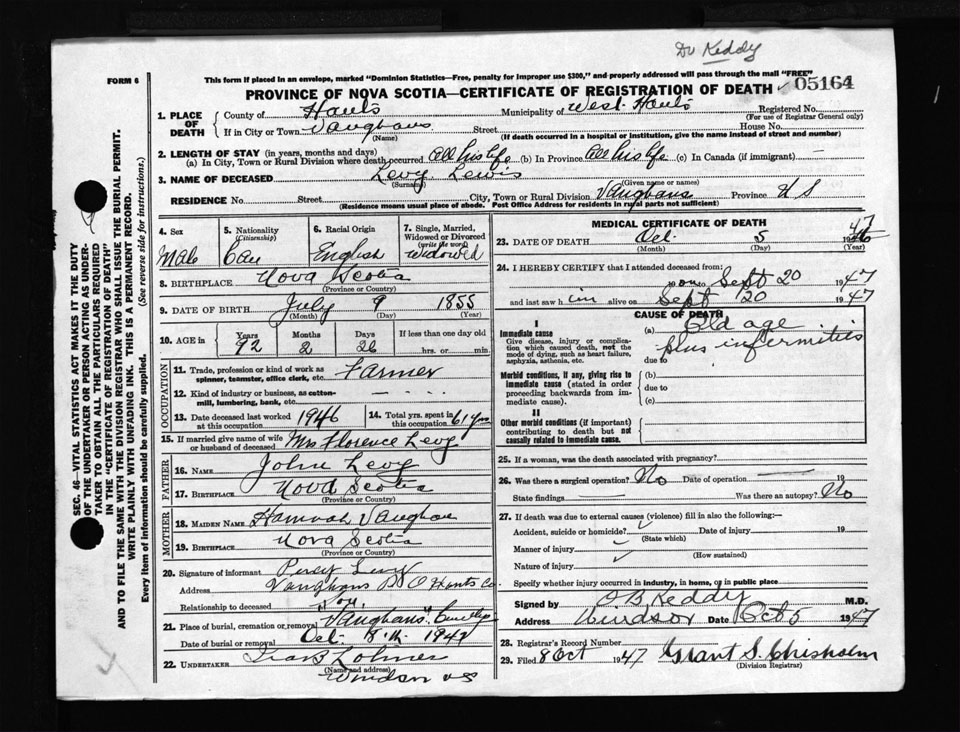 Dr Keddy
FORM 6
This form if placed in an envelope, marked "Dominion Statistics—Free, penalty for improper use $300," and properly addressed will pass through the mail "FREE"
PROVINCE OF NOVA SCOTIA—CERTIFICATE OF REGISTRATION OF DEATH
05164
1. PLACE OF DEATH
County of Hants Municipality of West Hants Registered No.
(For use of Registrar General only)
If in City or Town Vaughans Street House No.
(Name) (If death occurred in a hospital or institution, give the name instead of street and number)
2. LENGTH OF STAY (in years, months and days)
(a) In City, Town or Rural Division where death occurred All his life (b) In Province All his life (c) In Canada (if immigrant) —
3. NAME OF DECEASED Levy Lewis
(Surname) (Given name or names)
RESIDENCE No. Street City, Town or Rural Division Vaughans Province N S
(Residence means usual place of abode. Post Office Address for residents in rural parts not sufficient)
4. Sex Male
5. Nationality (Citizenship) Can
6. Racial Origin English
7. Single, Married, Widowed or Divorced (write the word) Widowed
8. BIRTHPLACE Nova Scotia
(Province or Country)
9. DATE OF BIRTH July 9 1855
(Month) (Day) (Year)
10. AGE IN Years 92 Months 2 Days 26 If less than one day old hrs. or min.
OCCUPATION
11. Trade, profession or kind of work as spinner, teamster, office clerk, etc. Farmer
12. Kind of industry or business, as cotton-mill, lumbering, bank, etc. —
13. Date deceased last worked at this occupation 1946
14. Total yrs. spent in this occupation 61 yrs
15. If married give name of wife or husband of deceased Mrs Florence Levy
FATHER
16. NAME John Levy
17. BIRTHPLACE Nova Scotia
(Province or Country)
MOTHER
18. MAIDEN NAME Hannah Vaughan
19. BIRTHPLACE Nova Scotia
(Province or Country)
20. Signature of informant Percy Levy
Address Vaughans P O Hants Co.
Relationship to deceased Son
21. Place of burial, cremation or removal Vaughans
Date of burial or removal Oct. 8th 1947
22. UNDERTAKER
(Name and address)
Windsor NS
MEDICAL CERTIFICATE OF DEATH
23. DATE OF DEATH Oct. 5 47
(Month) (Day) (Year)
24. I HEREBY CERTIFY that I attended deceased from:
on Sept 20 1947
and last saw him alive on Sept 20 1947
CAUSE OF DEATH
I
Immediate cause
Give disease, injury or complication which caused death, not the mode of dying, such as heart failure, asphyxia, asthenia, etc.
(a) Old age
plus infirmities
due to
Morbid conditions, if any, giving rise to immediate cause (stated in order proceeding backwards from immediate cause).
(b)
due to
(c)
II
Other morbid conditions (if important) contributing to death but not causally related to immediate cause.
25. If a woman, was the death associated with pregnancy?
26. Was there a surgical operation? No Date of operation — 19
State findings — Was there an autopsy? No
27. If death was due to external causes (violence) fill in also the following:—
Accident, suicide or homicide? Date of injury 19
(State which)
Manner of injury
(How sustained)
Nature of injury
Specify whether injury occurred in industry, in home, or in public place
Signed by A B Keddy M.D.
Address Windsor Date Oct 5 1947
28. Registrar's Record Number
29. Filed 8 Oct 1947 Grant S. Chisholm
(Division Registrar)
SEC. 46—VITAL STATISTICS ACT MAKES IT THE DUTY
OF THE UNDERTAKER OR PERSON ACTING AS UNDER-
TAKER TO OBTAIN ALL THE PARTICULARS REQUIRED
IN THE "CERTIFICATE OF REGISTRATION OF DEATH"
AND TO FILE THE SAME WITH THE DIVISION REGISTRAR WHO SHALL ISSUE THE BURIAL PERMIT.
WRITE PLAINLY WITH UNFADING INK. THIS IS A PERMANENT RECORD.
Every item of information should be carefully supplied. (See reverse side for instructions.)